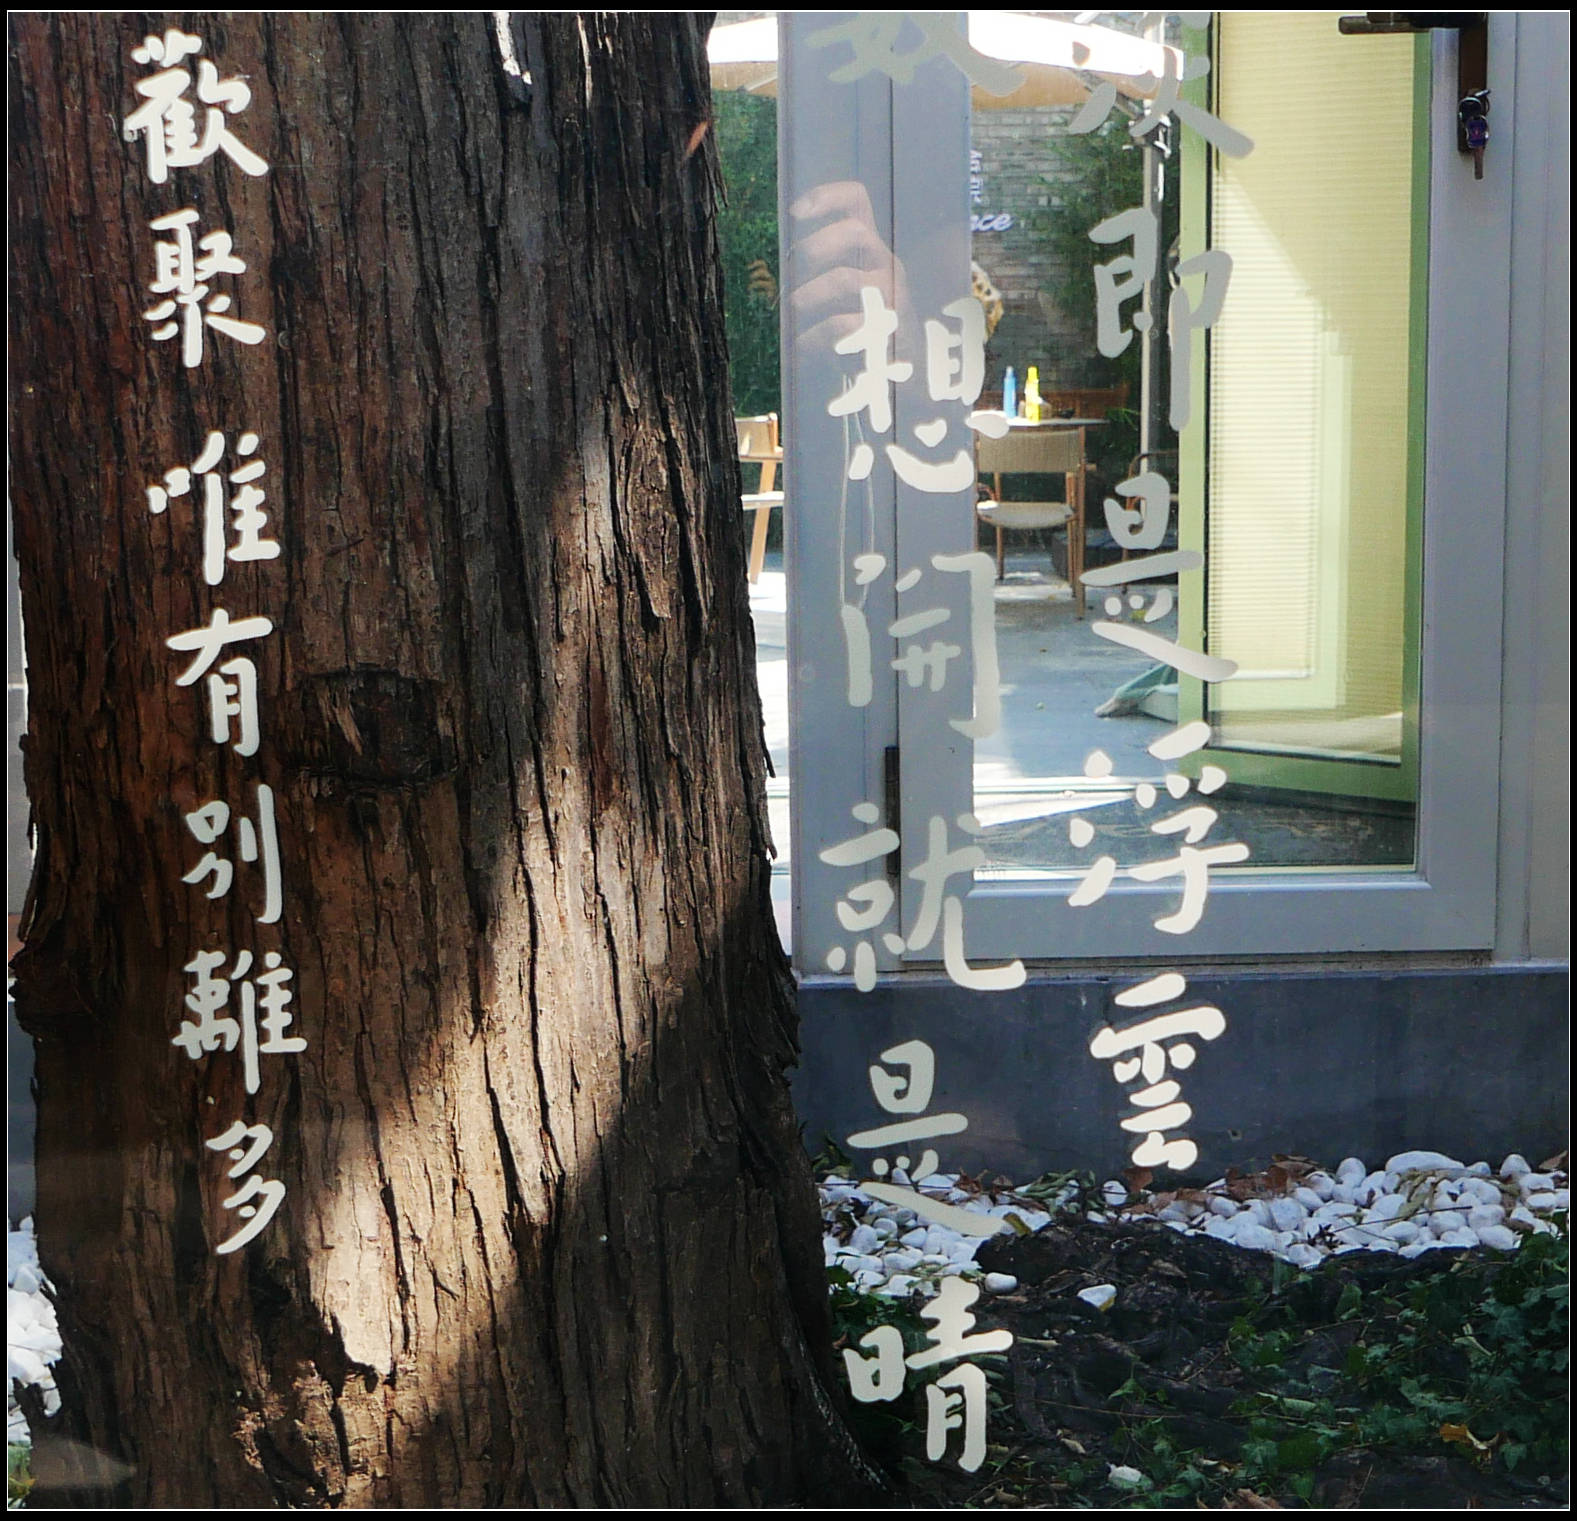 即是浮雲
想開就是晴
歡聚唯有別離多